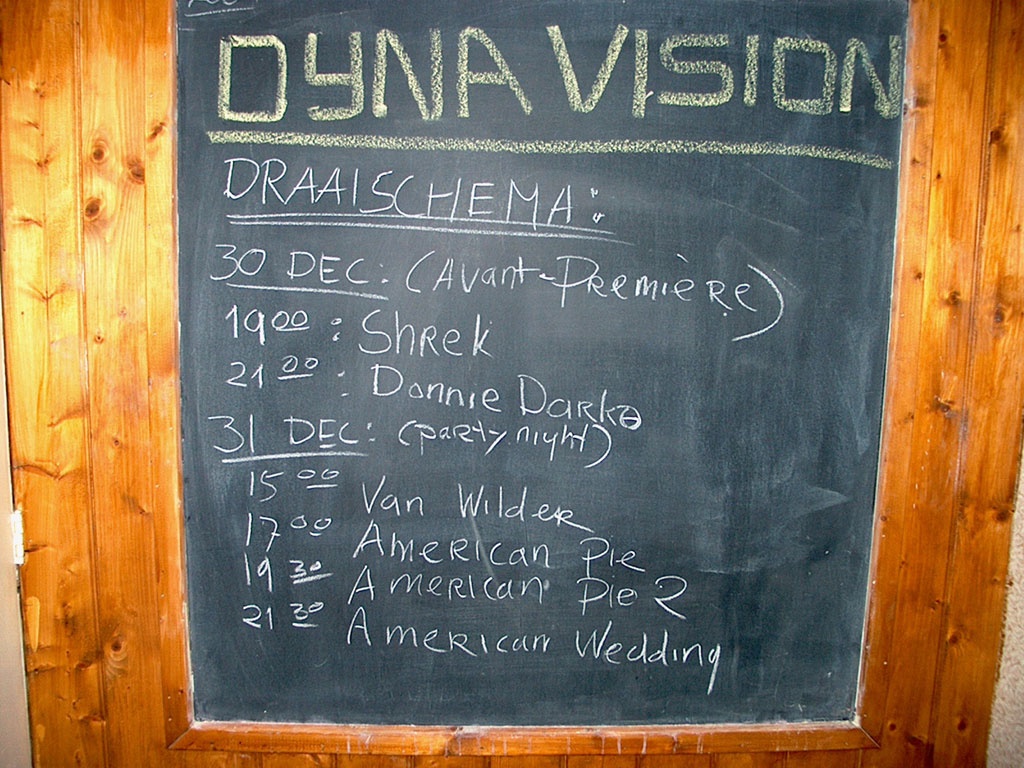 DYNA VISION
DRAAISCHEMA:
30 DEC: (Avant-Première)
19 00 : Shrek
21 00 : Donnie Darko
31 DEC: (party night)
15 00 Van Wilder
17 00 American Pie
19 30 American Pie 2
21 30 American Wedding